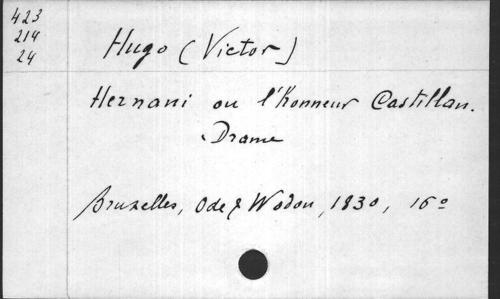 423
214
24
Hugo (Victor)
Hernani ou l'Honneur Castillan.
Drame
Bruxelles, Ode & Wodon, 1830, 16º